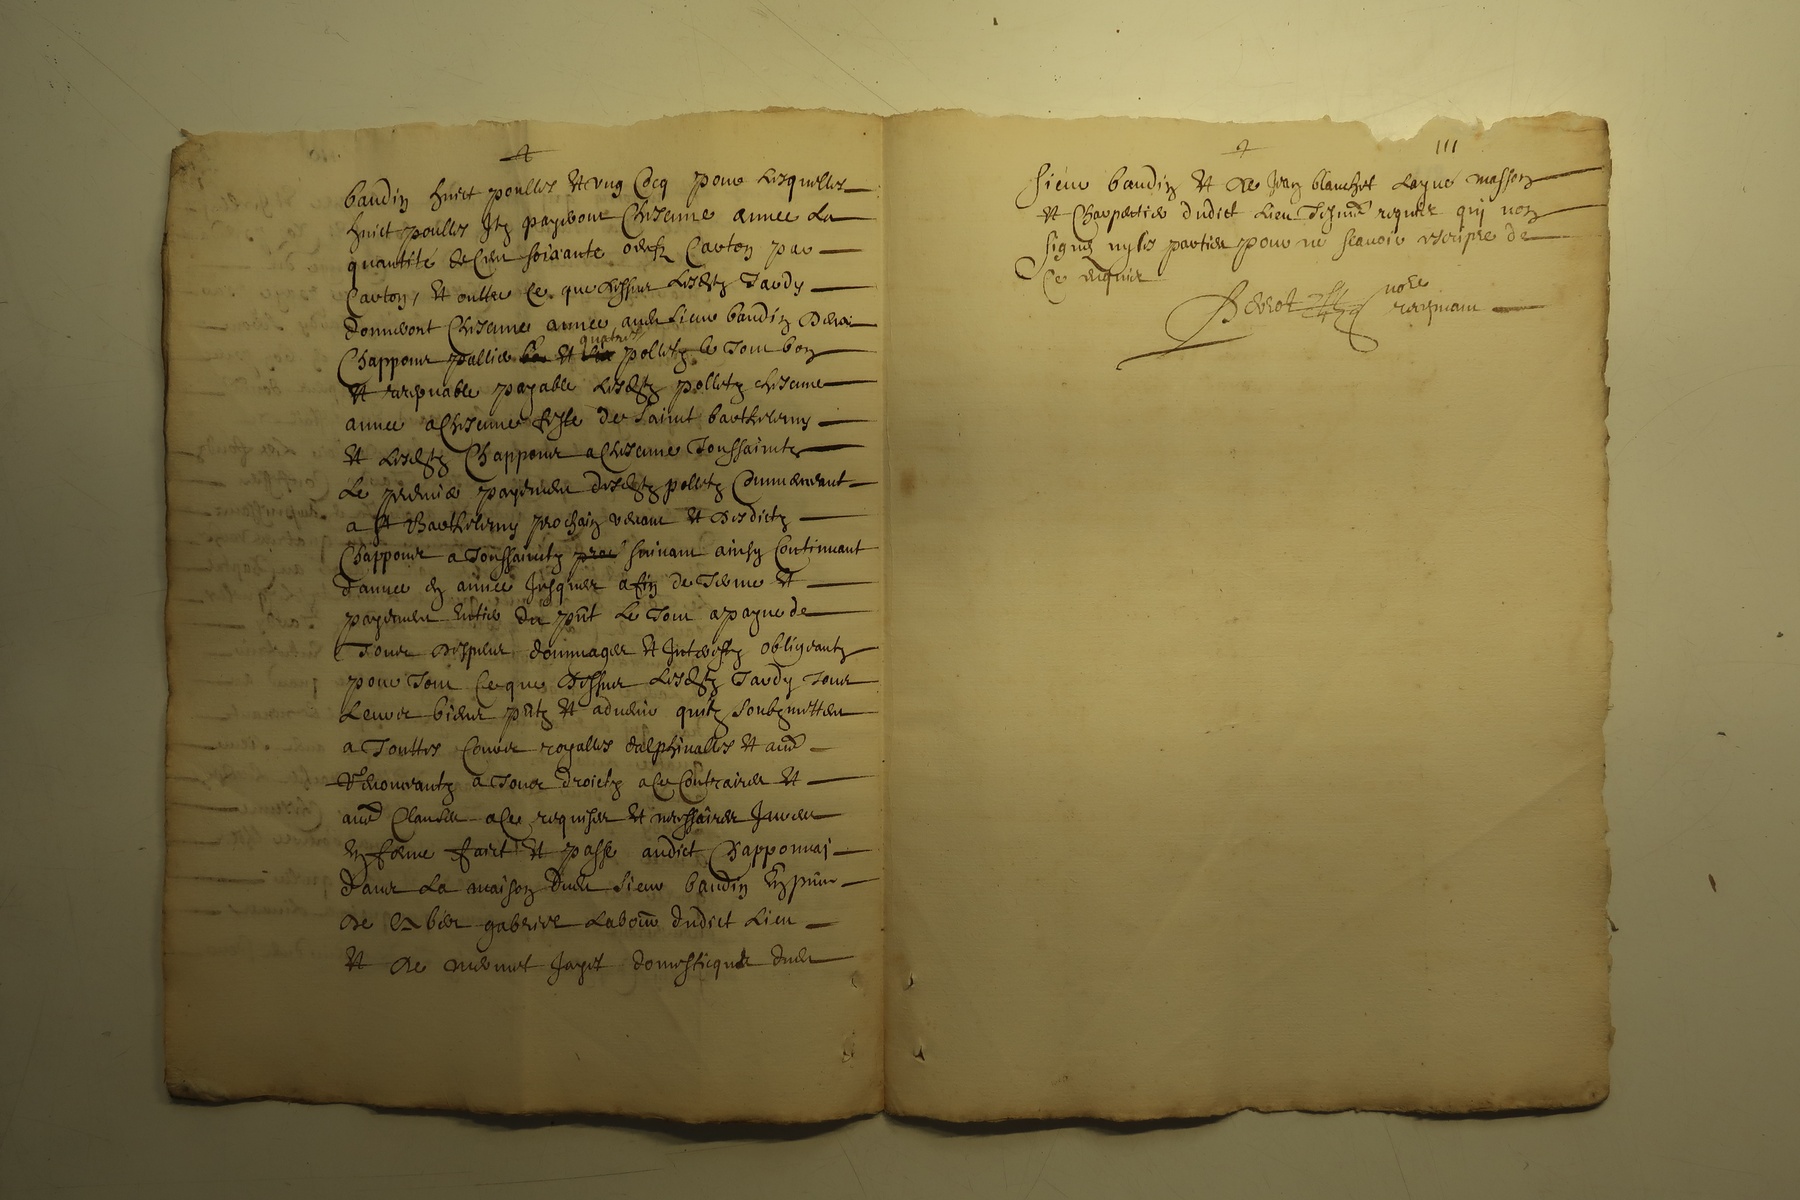 baudin huict poulles et ung Cocq pour lesquelles
huict poulles Ilz payeront Chascune annee la
quantité de Cent soixante oeufz Carton par
Carton, et oultre Ce que dessus lesdictz Tardy
donneront Chascune annee audict sieur baudin deux
Chappons pallier et quattre polletz le Tout bon
et recepvable payable lesdictz polletz chascune
annee a Chascune feste de saint barthelemy
et lesdictz Chappons a Chascune Toussainctz
Le premier payement desdictz polletz Commencant
a st Barthelemy prochain venant et desdictz
Chappons a Toussainctz suivant ainsy Continuant
d'annee en annee Jusques a fin de Terme et
payement entier du pnt Le Tout a payne de
Tous despens dommages et Interestz obligeantz
pour Tout Ce que dessus lesdictz Tardy Tous
Leurs biens pntz et advenir quilz soubzmettent
a Touttes Cours royalles dalphinalles et aues
Renonceantz a Tous droictz a Ce Contraires et
aues Clauses a Ce requises et necessaires Jurees
En forme faict et passe audict Chapponnay
dans La maison dudict sieur baudin En pnce
de gabriel Labour dudict Lieu
et de mermet Jayet domesticque dudict
III
sieur baudin et de Jean blanchet Layné masson
et Charpentier dudict Lieu Tesmoings requis qui nont
signé ny les parties pour ne scavoir escripre de
Ce enquis
notre
recepvant